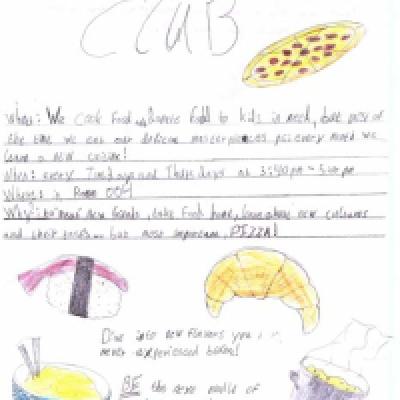 CLUB
What: We cook food and donate food to kids in need, but most of
the time we eat our delicious masterpieces. psst every month we
learn a new cuisine!
When: every Tuesdays and Thursdays at 3:40 pm - 5:00 pm
Where: in Room 004
Why: to meet new friends, take food home, learn about new cultures
and their foods... but most important, PIZZA!
Dive into new flavors you
never experienced before!
BE the next